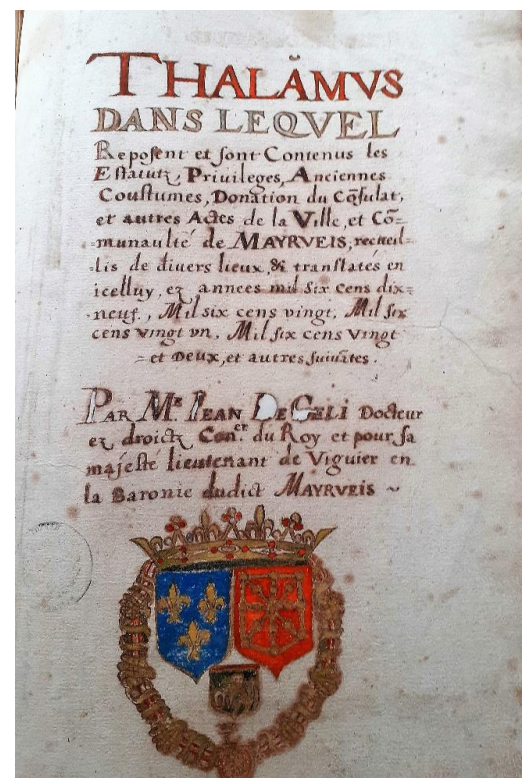 THALĀMVS
DANS LEQVEL
Reposent et sont Contenus les
Estatutz, Priuileges, Anciennes
Coustumes, Donation du Cōsulat,
et autres Actes de la Ville, et Cō-
munaulté de MAYRVEIS, recueil-
lis de diuers lieux, & translatés en
icelluy, ez annees mil six cens dix-
neuf, Mil six cens vingt, Mil six
cens vingt vn, Mil six cens vingt
et Deux, et autres suiuātes.
PAR Mr IEAN DE GELI Docteur
ez droictz Coner du Roy et pour sa
majesté lieutenant de Viguier en
la Baronie dudict MAYRVEIS ~